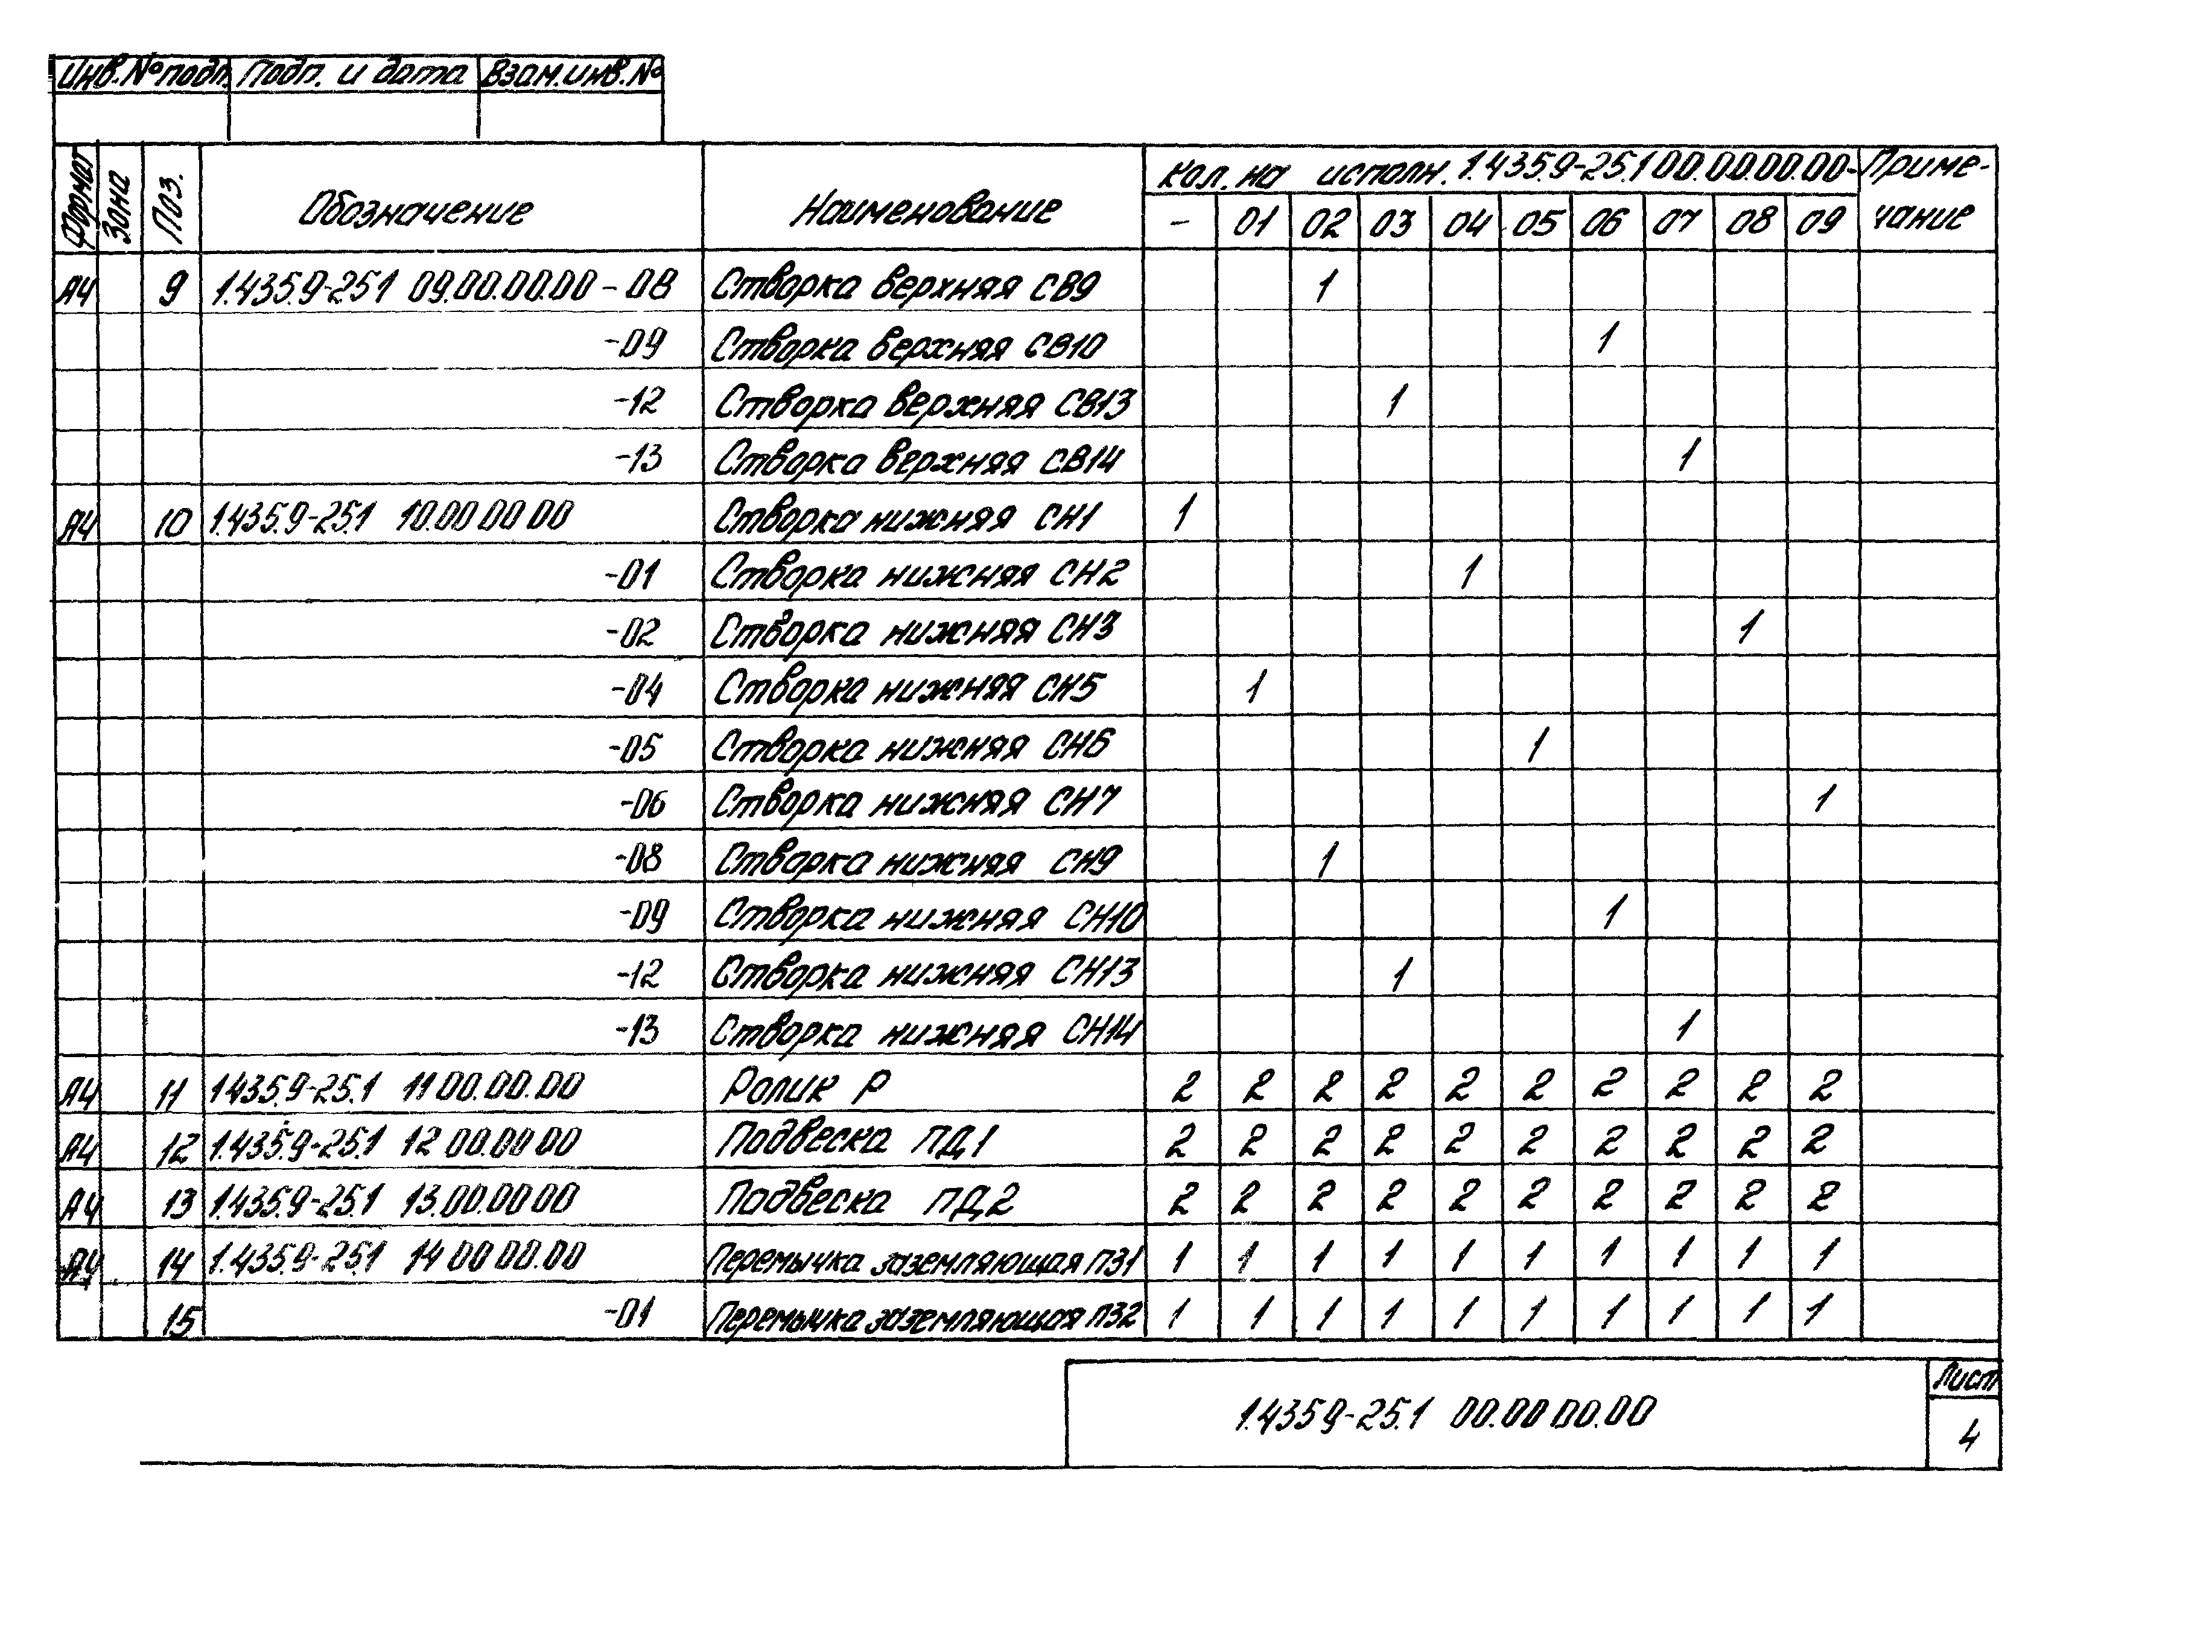 Инв.№подп. Подп. и дата Взам.инв.№
Формат Зона Поз. Обозначение Наименование Кол. на исполн. 1.435.9-25.1 00.00.00.00- Приме-
чание
- 01 02 03 04 05 06 07 08 09
А4 9 1.435.9-25.1 09.00.00.00-08 Створка верхняя СВ9 1
-09 Створка верхняя СВ10 1
-12 Створка верхняя СВ13 1
-13 Створка верхняя СВ14 1
А4 10 1.435.9-25.1 10.00 00 00 Створка нижняя СН1 1
-01 Створка нижняя СН2 1
-02 Створка нижняя СН3 1
-04 Створка нижняя СН5 1
-05 Створка нижняя СН6 1
-06 Створка нижняя СН7 1
-08 Створка нижняя СН9 1
-09 Створка нижняя СН10 1
-12 Створка нижняя СН13 1
-13 Створка нижняя СН14 1
А4 11 1.435.9-25.1 11 00.00.00 Ролик Р 2 2 2 2 2 2 2 2 2 2
А4 12 1.435.9-25.1 12 00.00 00 Подвеска ПД1 2 2 2 2 2 2 2 2 2 2
А4 13 1.435.9-25.1 13.00.00 00 Подвеска ПД2 2 2 2 2 2 2 2 2 2 2
А4 14 1.435.9-25.1 14 00 00.00 Перемычка заземляющая ПЗ1 1 1 1 1 1 1 1 1 1 1
15 -01 Перемычка заземляющая ПЗ2 1 1 1 1 1 1 1 1 1 1
1.435.9-25.1 00.00 00.00
Лист
4